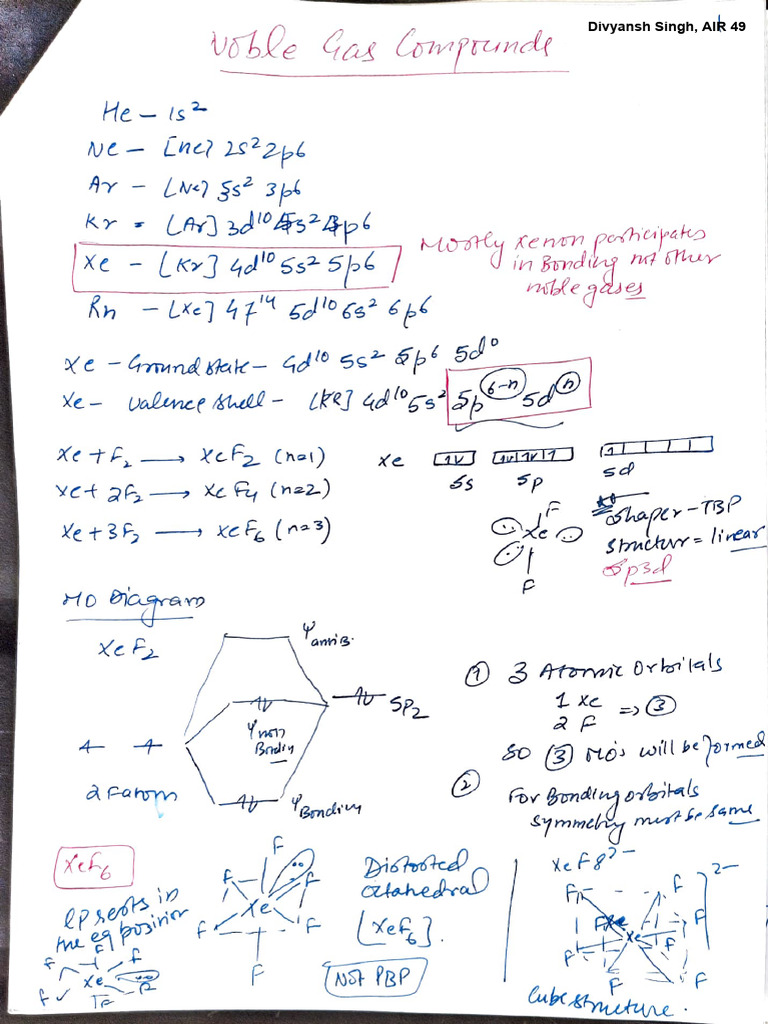 Divyansh Singh, AIR 49
Noble Gas Compounds
He – 1s²
Ne – [ne] 2s² 2p6
Ar – [Ne] 3s² 3p6
Kr = [Ar] 3d10 4s² 4p6
Xe – [Kr] 4d10 5s² 5p6
Mostly xenon participates
in Bonding not other
noble gases
Rn – [Xe] 4f14 5d10 6s² 6p6
Xe – Ground state – 4d10 5s² 5p6 5d0
Xe – valence shell – [Kr] 4d10 5s² 5p 6-n 5d n
Xe + F2 → XeF2 (n=1)
Xe + 2F2 → XeF4 (n=2)
Xe + 3F2 → XeF6 (n=3)
Xe 5s 5p 5d
F
Xe
F
Shaper – TBP
Structur = linear
Sp3d
MO Diagram
XeF2
Ψ antiB.
5P2
Ψ non
Bondin
2 Fatom
Ψ Bonding
① 3 Atomic Orbitals
1 Xe
2 F ⇒ ③
SO ③ MO's will be formed
② For Bonding orbitals
symmetry must be same
XeF6
lp serts in
the eq position
F F F Xe F F F
F F F Xe F F F
Distorted
octahedral
[XeF6].
Not PBP
XeF8 2–
F F F F Xe F F F F 2–
Cube structure.